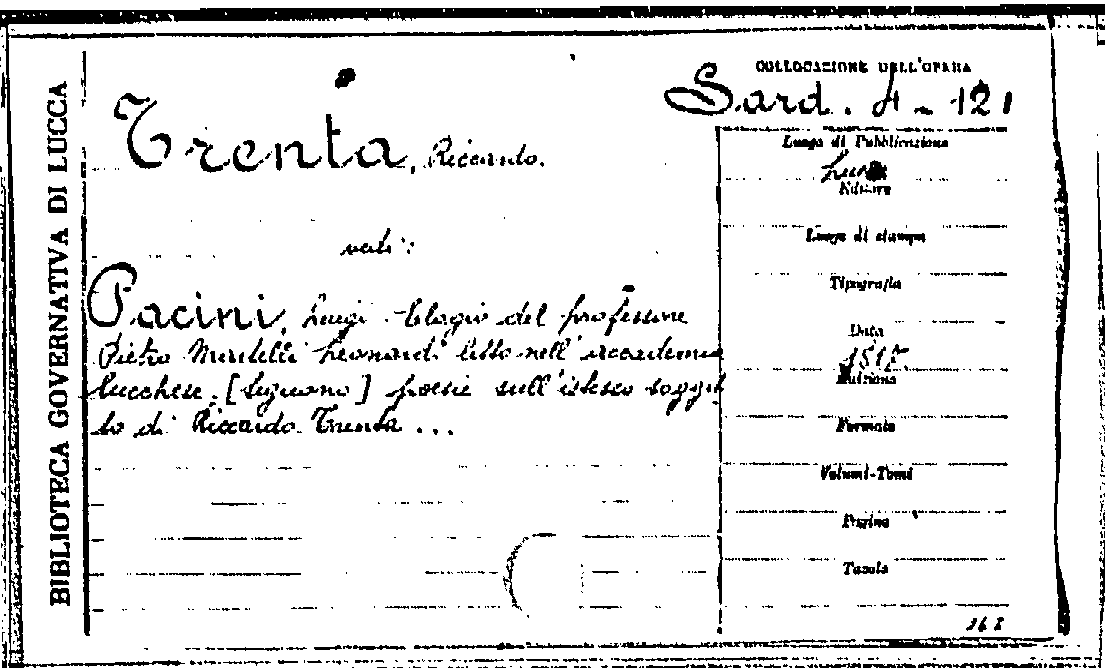 BIBLIOTECA GOVERNATIVA DI LUCCA
COLLOCAZIONE DELL'OPERA
Sard. A - 121
Trenta, Riccardo.
vedi:
Pacini, Luigi Elogio del professore
Pietro Leonardi letto nell'accademia
lucchese. [Seguono] poesie sull'istesso sogget
to di Riccardo Trenta ...
Luogo di Pubblicazione
Editore
Luogo di stampa
Tipografia
Data
Edizione
Formato
Volumi-Tomi
Pagine
Tavole